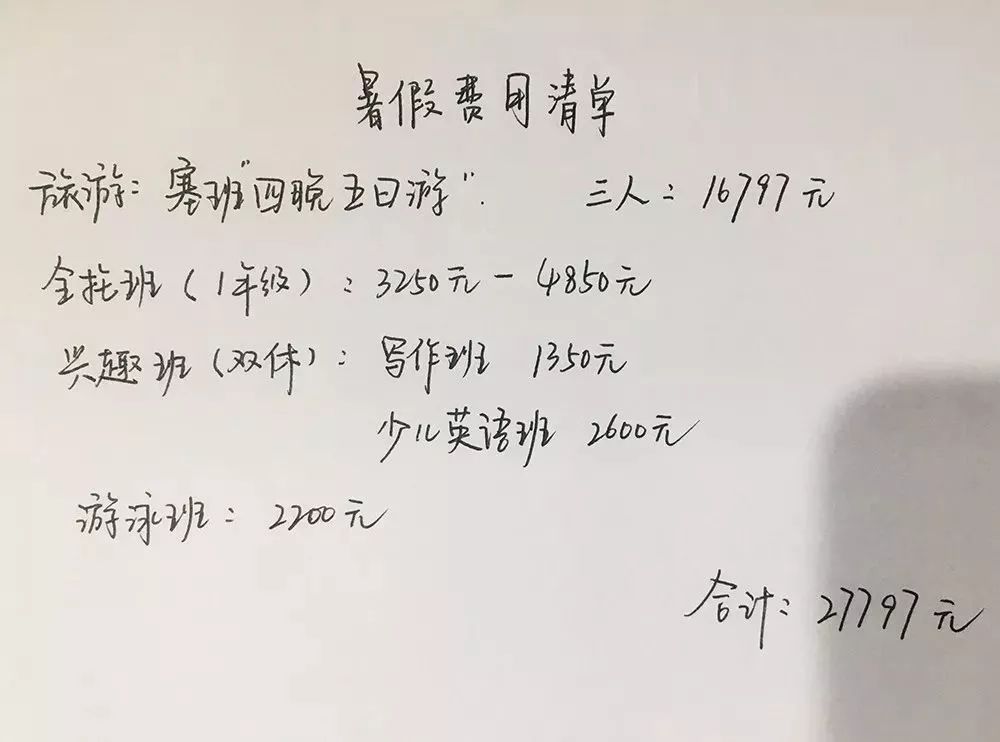 暑假费用清单
旅游：塞班"四晚五日游". 三人：16797元
全托班（1年级）：3250元－4850元
兴趣班（双休）：写作班 1350元
少儿英语班 2600元
游泳班：2200元
合计：27797元